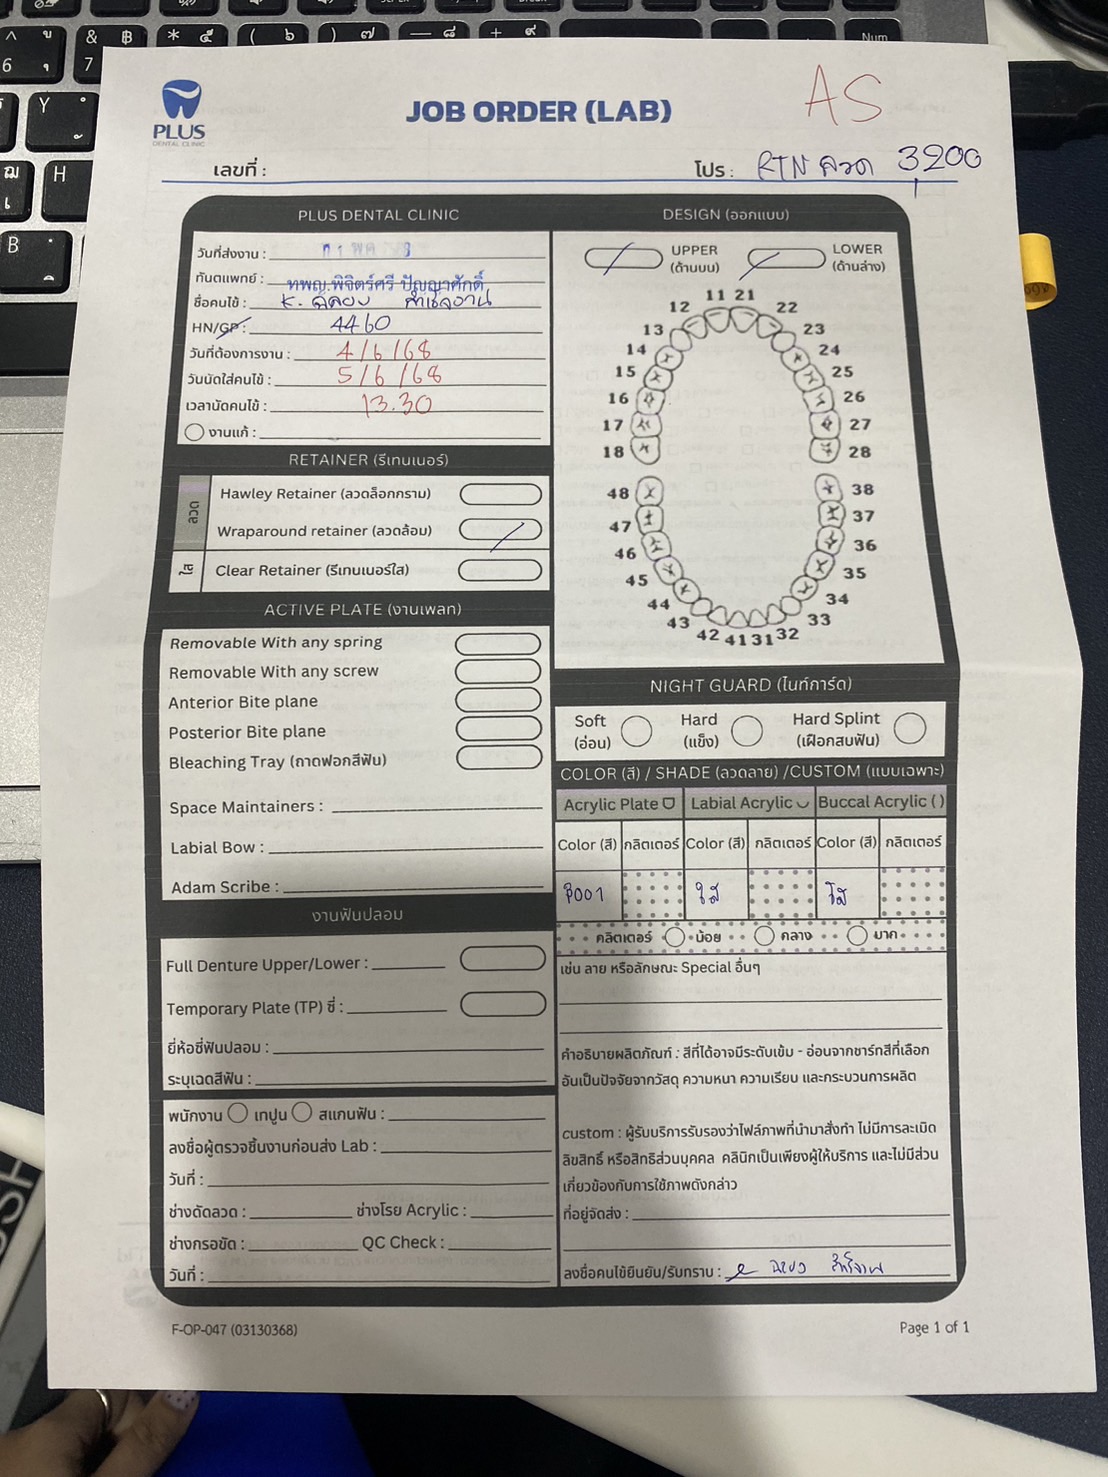 PLUS
DENTAL CLINIC
JOB ORDER (LAB)
AS
เลขที่ :
โปร : RTN ลวด 3200
PLUS DENTAL CLINIC
วันที่ส่งงาน :
ทันตแพทย์ : ทพญ.พิจิตร์ศรี ปัญญาศักดิ์
ชื่อคนไข้ : K.
HN/GP : 4460
วันที่ต้องการงาน : 4/6/68
วันนัดใส่คนไข้ : 5/6/68
เวลานัดคนไข้ : 13.30
งานแก้ :
RETAINER (รีเทนเนอร์)
ลวด
Hawley Retainer (ลวดล็อกกราม)
Wraparound retainer (ลวดล้อม)
ใส
Clear Retainer (รีเทนเนอร์ใส)
ACTIVE PLATE (งานเพลท)
Removable With any spring
Removable With any screw
Anterior Bite plane
Posterior Bite plane
Bleaching Tray (ถาดฟอกสีฟัน)
Space Maintainers :
Labial Bow :
Adam Scribe :
งานฟันปลอม
Full Denture Upper/Lower :
Temporary Plate (TP) ซี่ :
ยี่ห้อซี่ฟันปลอม :
ระบุเฉดสีฟัน :
พนักงาน เทปูน สแกนฟัน :
ลงชื่อผู้ตรวจชิ้นงานก่อนส่ง Lab :
วันที่ :
ช่างดัดลวด : ช่างโรย Acrylic :
ช่างกรอขัด : QC Check :
วันที่ :
DESIGN (ออกแบบ)
UPPER (ด้านบน)
LOWER (ด้านล่าง)
11 21
12 22
13 23
14 24
15 25
16 26
17 27
18 28
48 38
47 37
46 36
45 35
44 34
43 33
42 41 31 32
NIGHT GUARD (ไนท์การ์ด)
Soft (อ่อน)
Hard (แข็ง)
Hard Splint (เฝือกสบฟัน)
COLOR (สี) / SHADE (ลวดลาย) /CUSTOM (แบบเฉพาะ)
Acrylic Plate Labial Acrylic Buccal Acrylic ( )
Color (สี) กลิตเตอร์ Color (สี) กลิตเตอร์ Color (สี) กลิตเตอร์
P001 ใส ใส
กลิตเตอร์ น้อย กลาง มาก
เช่น ลาย หรือลักษณะ Special อื่นๆ
คำอธิบายผลิตภัณฑ์ : สีที่ได้อาจมีระดับเข้ม - อ่อนจากชาร์ทสีที่เลือก
อันเป็นปัจจัยจากวัสดุ ความหนา ความเรียบ และกระบวนการผลิต
custom : ผู้รับบริการรับรองว่าไฟล์ภาพที่นำมาสั่งทำ ไม่มีการละเมิด
ลิขสิทธิ์ หรือสิทธิส่วนบุคคล คลินิกเป็นเพียงผู้ให้บริการ และไม่มีส่วน
เกี่ยวข้องกับการใช้ภาพดังกล่าว
ที่อยู่จัดส่ง :
ลงชื่อคนไข้ยืนยัน/รับทราบ :
F-OP-047 (03130368)
Page 1 of 1